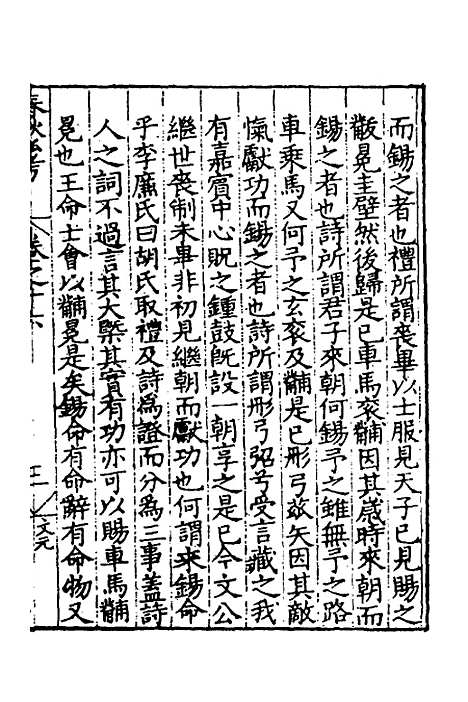 而錫之者也禮所謂喪畢以士服見天子已見賜之
黻冕圭璧然後歸是已車馬衮黼因其歲時來朝而
錫之者也詩所謂君子來朝何錫予之雖無予之路
車乘馬又何予之玄衮及黼是已彤弓玈矢因其敵
愾獻功而錫之者也詩所謂彤弓弨兮受言藏之我
有嘉賓中心貺之鍾鼓旣設一朝享之是已今文公
繼世喪制未畢非初見繼朝而獻功也何謂來錫命
乎李廉氏曰胡氏取禮及詩爲證而分爲三事蓋詩
人之詞不過言其大槩其實有功亦可以賜車馬黼
冕也王命士會以黼冕是矣錫命有命辭有命物又
文元